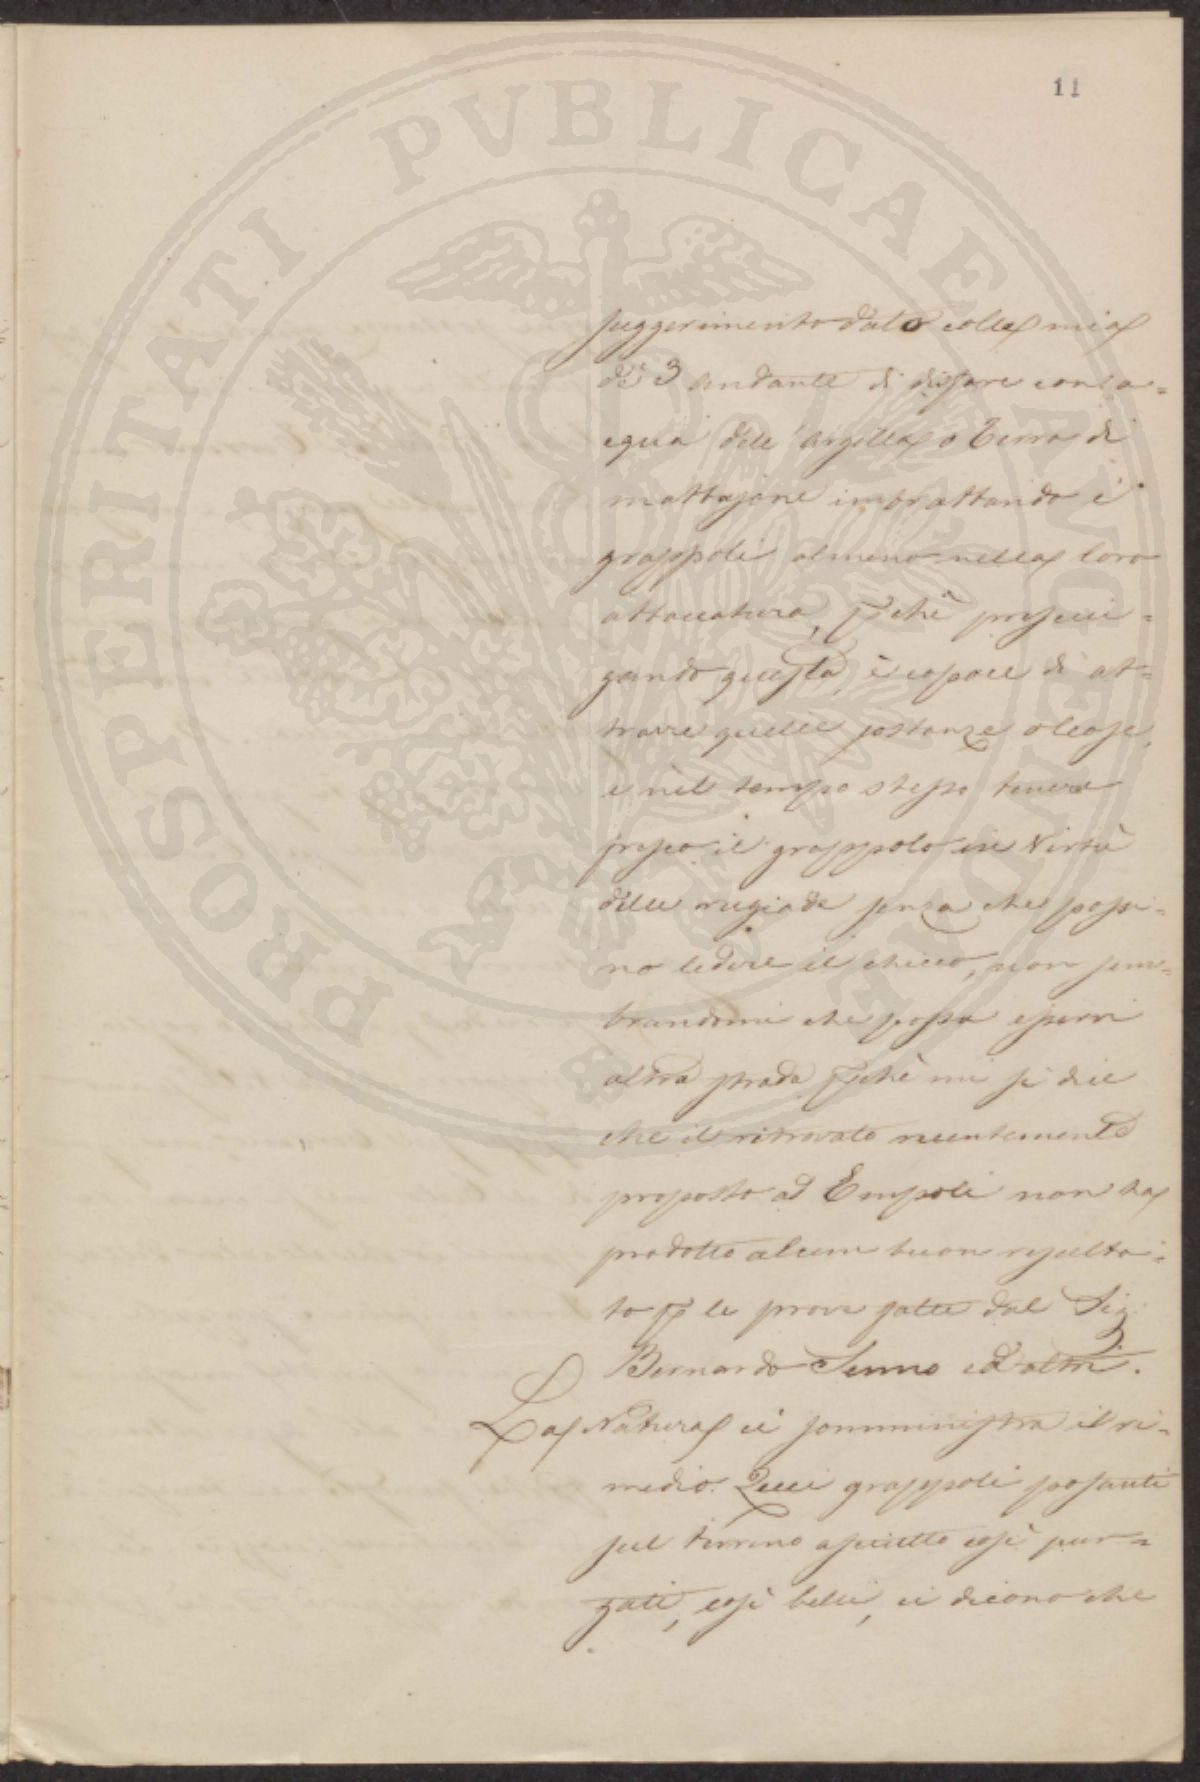 11
PROSPERITATI PVBLICAE AVGENDAE
suggerimento dato colla mia
de' 3 andante di disfare con a=
cqua dell'argilla o terra di
mattajone imbrattando i
grappoli almeno nella loro
attaccatura, pchè prosciu=
gando questa, è capace di at=
trarre quelle sostanze oleose,
e nel tempo stesso tenere
fresco il grappolo in virtù
delle rugiade senza che possi=
no ledere il chicco, non sem=
brandomi che possa esservi
altra strada pchè mi si dice
che il ritrovato recentemente
proposto ad Empoli non ha
prodotto alcun buon resulta=
to p le prove fatte dal Sig.
Bernardo Senno ed altri.
La Natura ci somministra il ri=
medio. Quei grappoli posanti
sul terreno asciutto così pur=
gati, così belli, ci dicono che